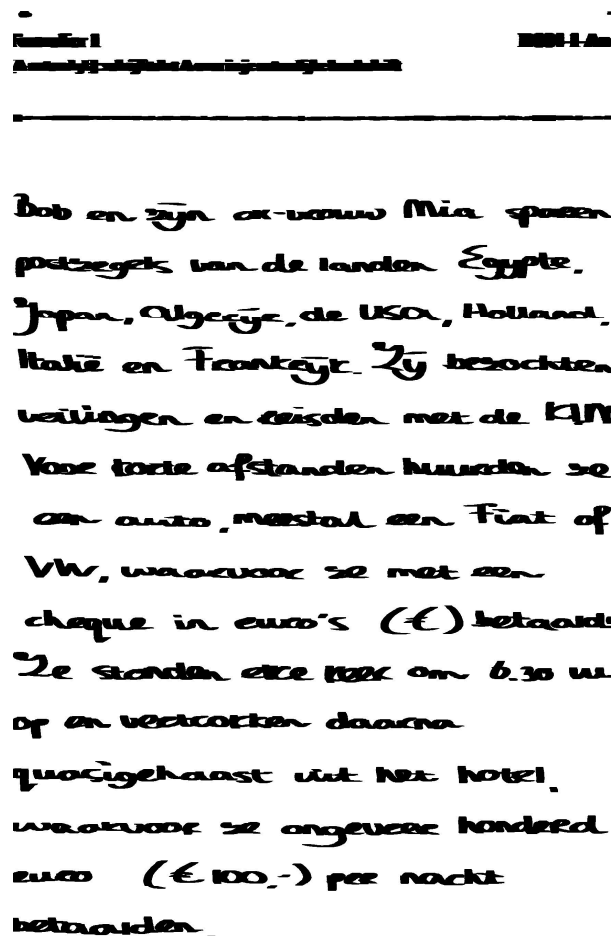 Bob en zijn ex-vrouw Mia sparen
postzegels van de landen Egypte,
Japan, Algerije, de USA, Holland,
Italië en Frankrijk. Zij bezochten
veilingen en reisden met de KLM
Voor korte afstanden huurden ze
een auto, meestal een Fiat of
VW, waarvoor ze met een
cheque in euro's (€) betaald
Ze stonden elke keer om 6.30 uu
op en vertrokken daarna
quasigehaast uit het hotel,
waarvoor ze ongeveer honderd
euro (€ 100,-) per nacht
betaalden